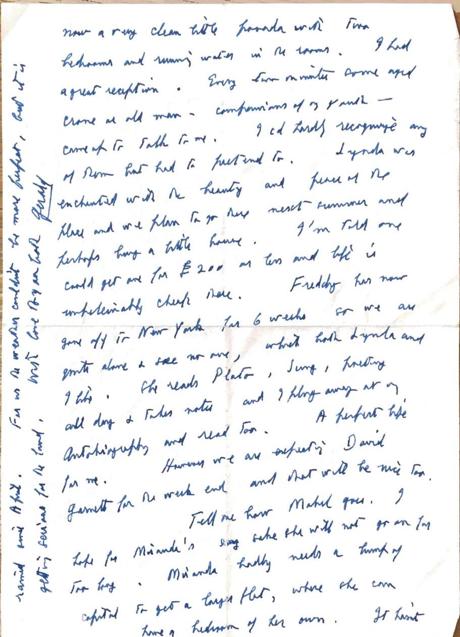 now a very clean little posada with two
bedrooms and running water in the rooms. I had
a great reception. Every two minutes some aged
crone or old man – companions of my youth –
came up to talk to me. I cd hardly recognize any
of them but had to pretend to. Lynda was
enchanted with the beauty and peace of the
place and we plan to go there next summer and
perhaps buy a little house. I'm told one
could get one for £200 or less and life is
unbelievably cheap there. Freddy has now
gone off to New York for 6 weeks so we are
quite alone & see no one, which both Lynda and
I like. She reads Plato, Jung, poetry
all day & takes notes and I plug away at my
Autobiography and read too. A perfect life
for me. However we are expecting David
Garnett for the week end and that will be nice too.
Tell me how Mabel goes. I
hope for Miranda's sake she will not go on for
too long. Miranda badly needs a lump of
capital to get a larger flat, where she can
have a bedroom of her own. It hasn't
rained since April. For us the weather couldn't be more perfect, but it is
getting serious for the land. With love to you both
Gerald